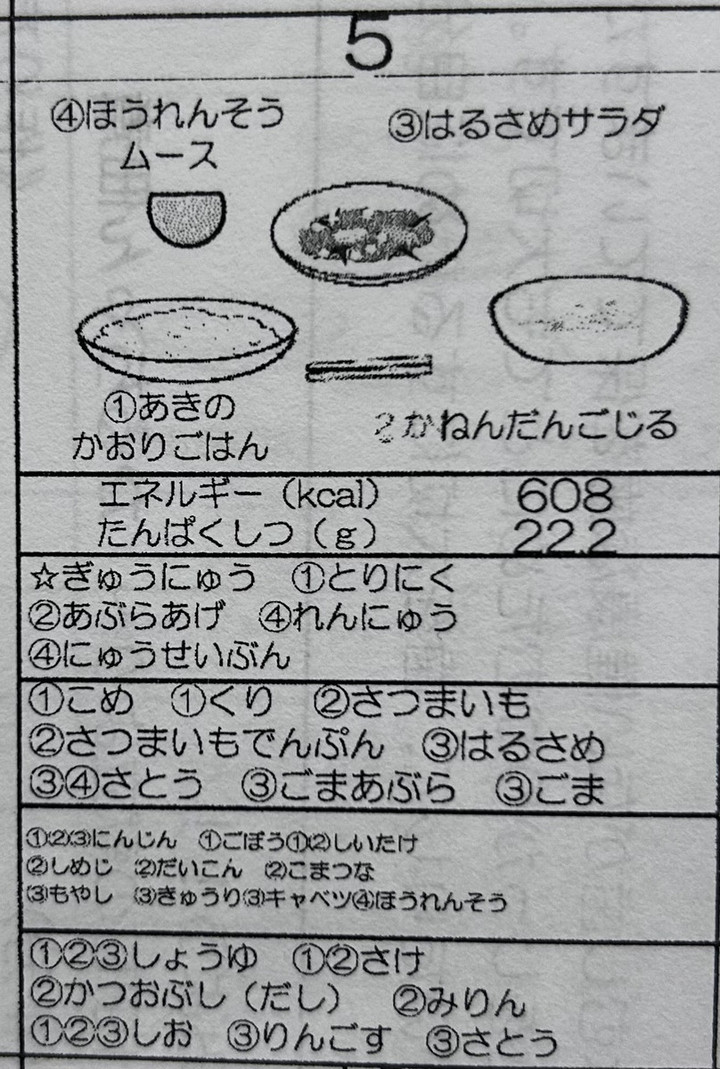 5
④ほうれんそう
ムース
③はるさめサラダ
①あきの
かおりごはん
2かねんだんごじる
エネルギー（kcal） 608
たんぱくしつ（g） 22.2
☆ぎゅうにゅう ①とりにく
②あぶらあげ ④れんにゅう
④にゅうせいぶん
①こめ ①くり ②さつまいも
②さつまいもでんぷん ③はるさめ
③④さとう ③ごまあぶら ③ごま
①②③にんじん ①ごぼう①②しいたけ
②しめじ ②だいこん ②こまつな
③もやし ③きゅうり③キャベツ④ほうれんそう
①②③しょうゆ ①②さけ
②かつおぶし（だし） ②みりん
①②③しお ③りんごす ③さとう